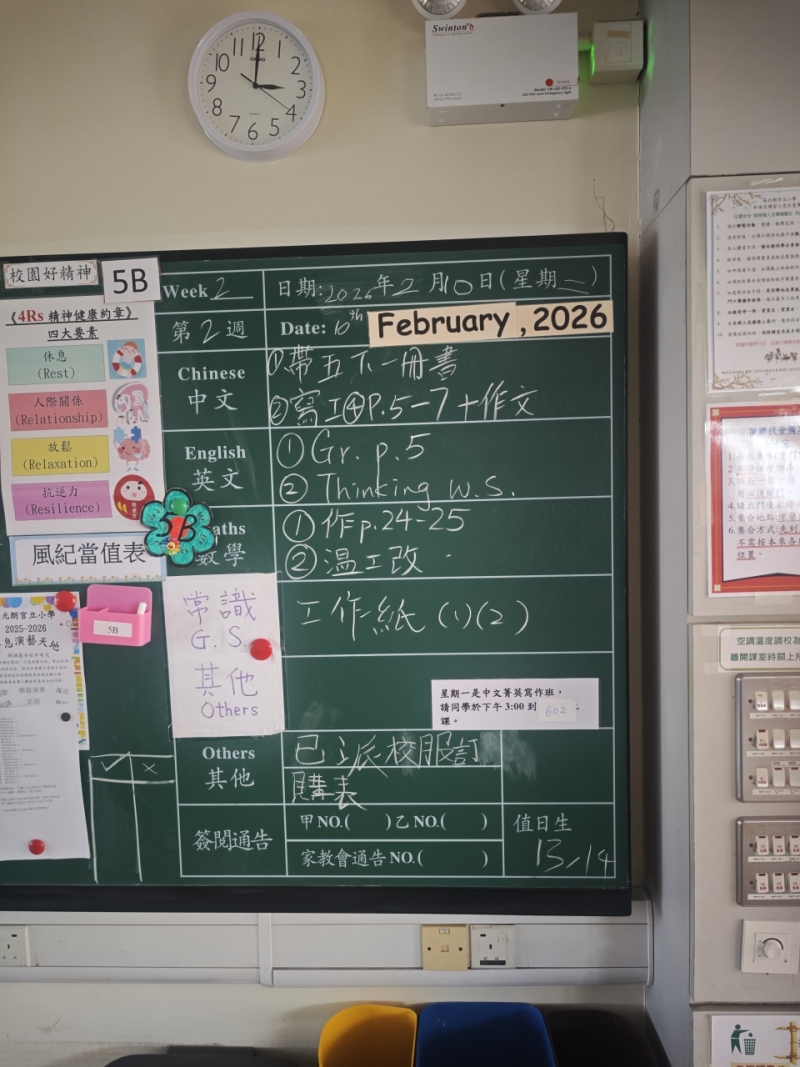 12
1
2
3
4
5
6
7
8
9
10
11
Swinton
校園好精神
5B
Week 2
日期:2026年2月10日(星期二)
第2週
Date: 10th
February , 2026
《4Rs 精神健康約章》
四大要素
休息
(Rest)
人際關係
(Relationship)
放鬆
(Relaxation)
抗逆力
(Resilience)
Chinese
中文
①帶五下一冊書
②寫工④P.5-7+作文
English
英文
① Gr. p.5
② Thinking W.S.
5B
aths
數學
① 作p.24-25
② 温工改
風紀當值表
5B
常識
G.S.
工作紙 (1)(2)
其他
Others
星期一是中文菁英寫作班，
請同學於下午 3:00 到 602
課。
元朗官立小學
2025-2026
息演藝天地
✓ ×
Others
其他
已派校服訂
購表
簽閱通告
甲NO.( )乙NO.( )
家教會通告NO.( )
值日生
13/14
空調溫度調校為
離開課室時關上所